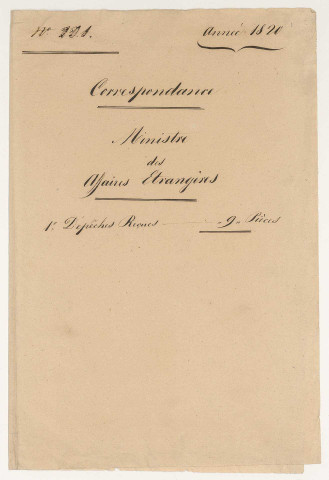 No 221.
Année 1820
Correspondance
Ministre
des
Affaires Etrangères
1o Dépêches Reçues 9 Pièces